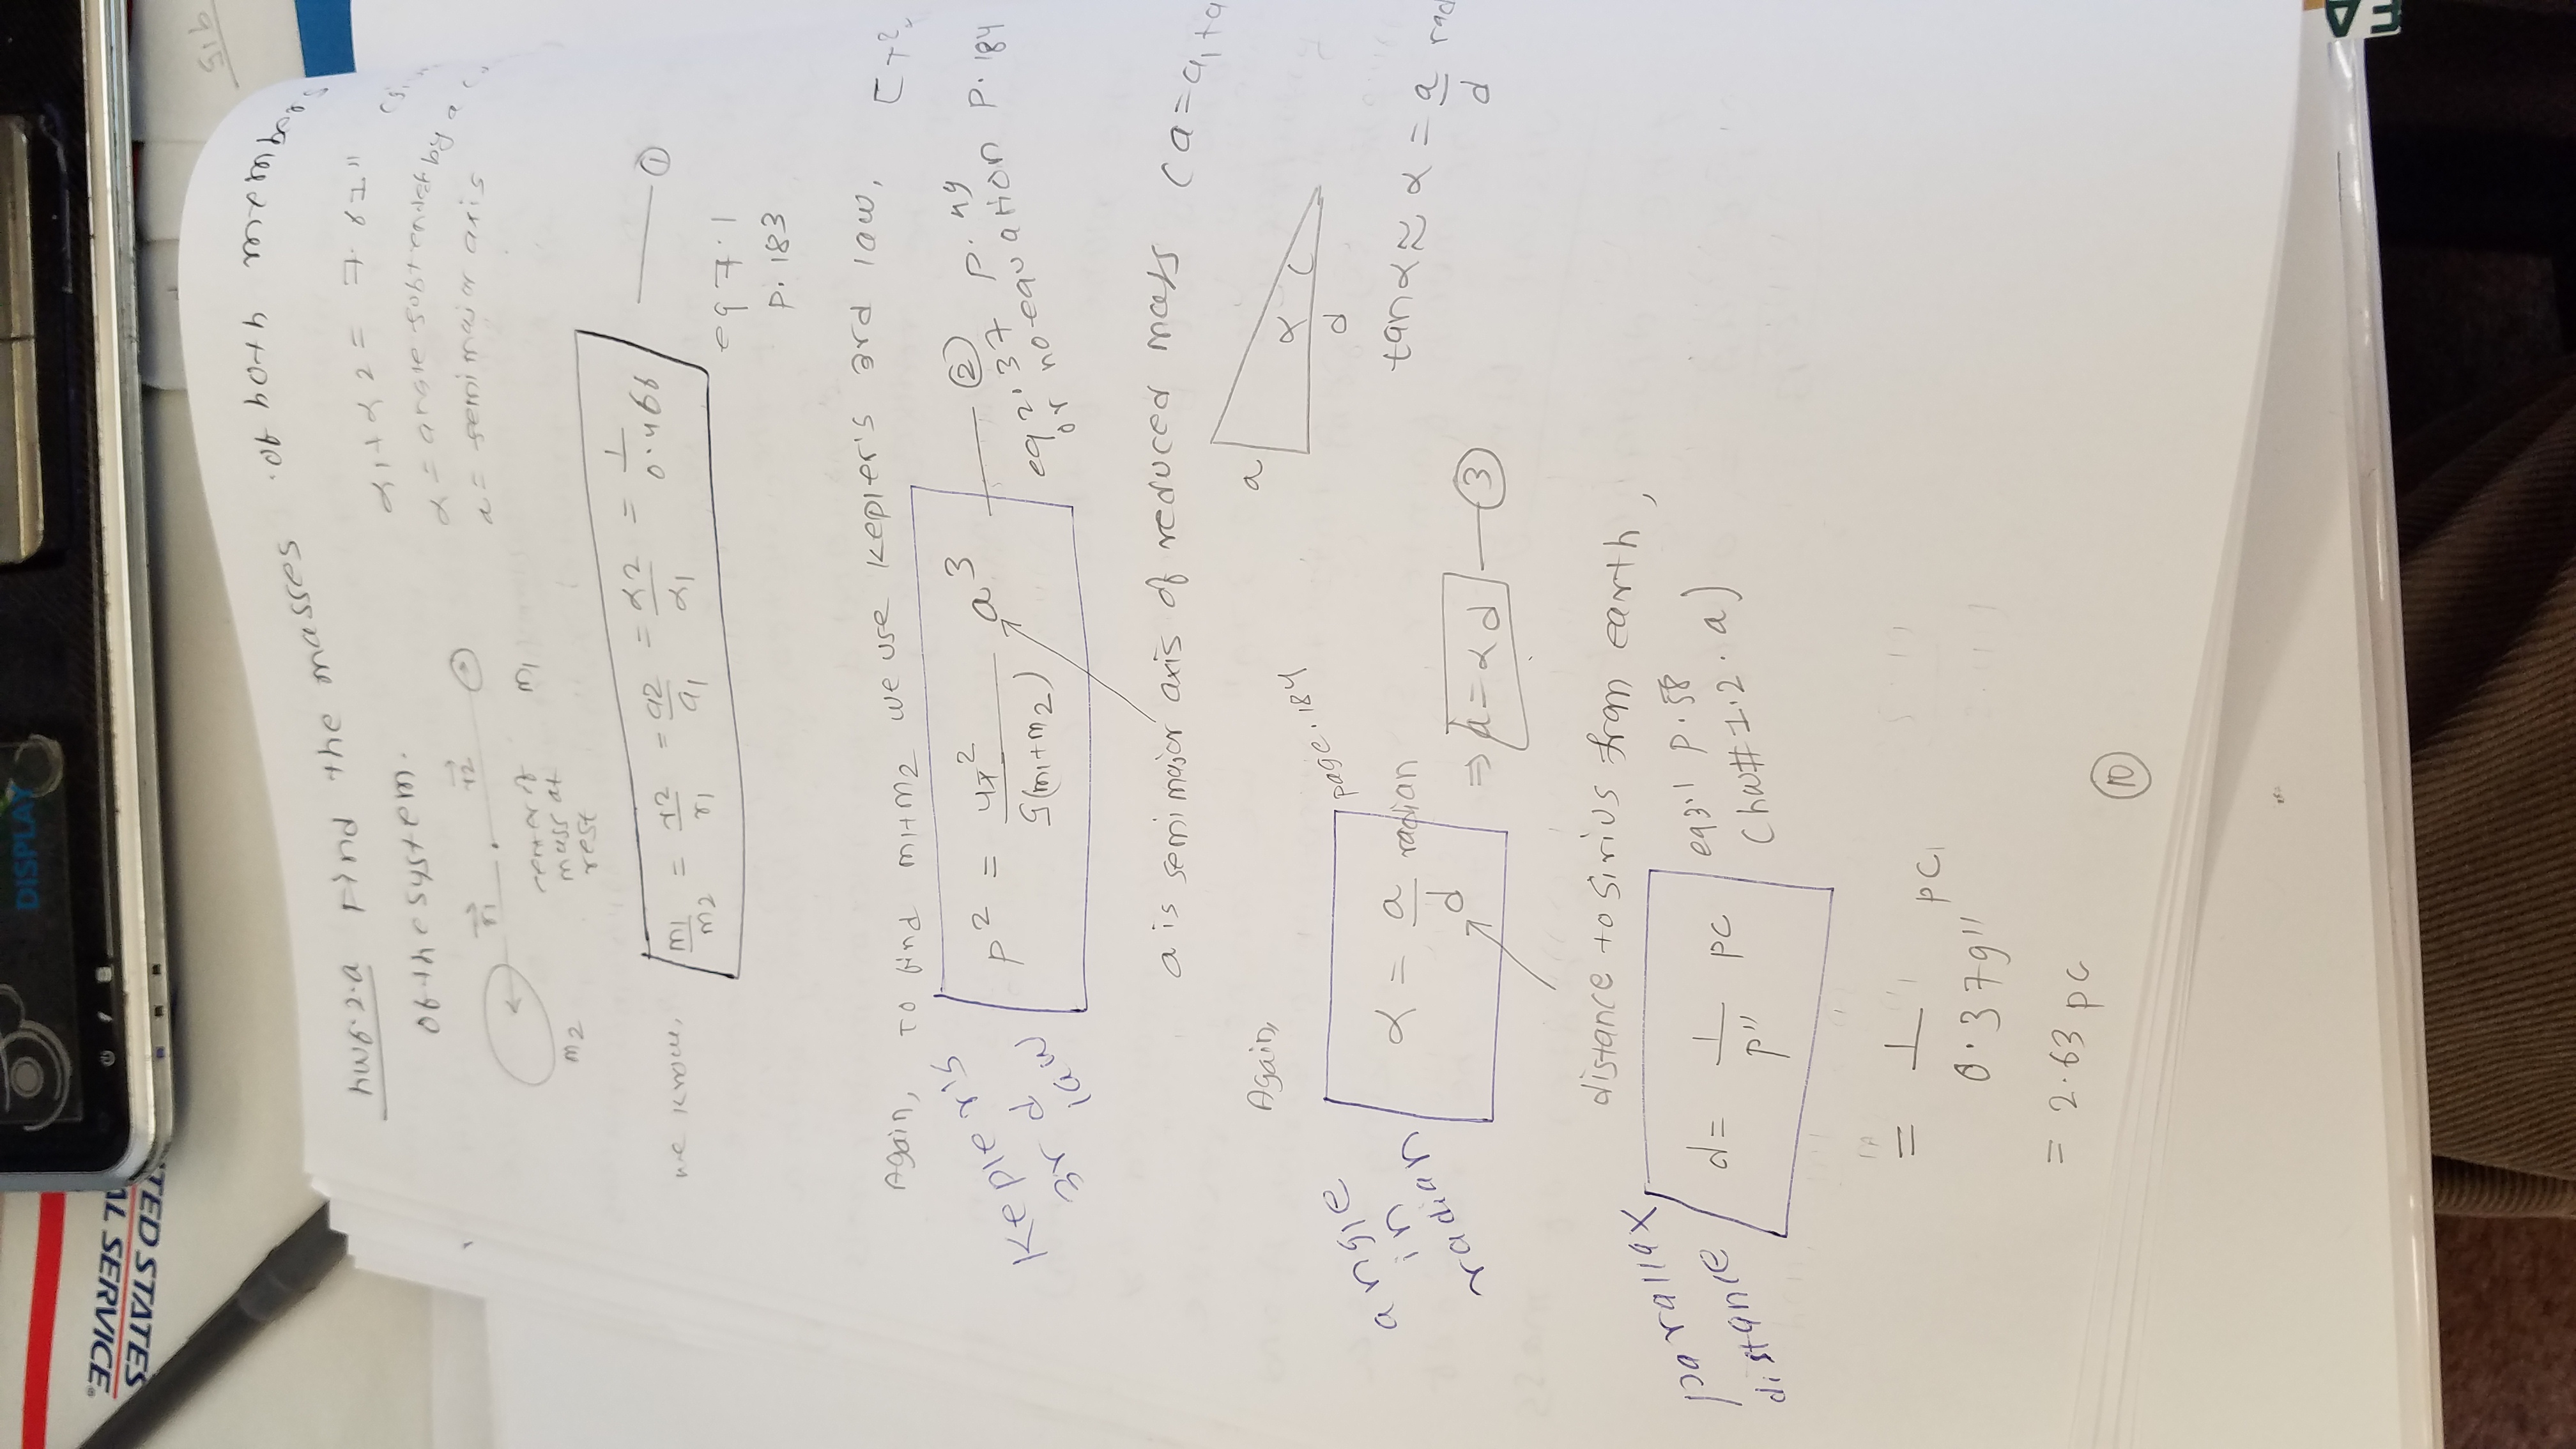 DISPLAY
UNITED STATES
POSTAL SERVICE®
915
hw6.2.a Find the masses of both members
of the system.
α1+α2 = 7.61"
α = angle subtended by a
a = semimajor axis
r1
r2
center of
mass at
rest
m1
m2
we know,
m1/m2 = r2/r1 = a2/a1 = α2/α1 = 1/0.466
①
eq 7.1
p. 183
Again, To find m1+m2 we use Kepler's 3rd law,
Kepler's
3rd
law
p² = 4π²/G(m1+m2) a³
②
eq 2.37 p. 49
or no equation p. 184
a is semimajor axis of reduced mass (a=a1+a
Again,
angle
in
radian
α = a/d radian
page. 184
⇒ a = αd
③
a
α
d
tanα ≈ α = a/d rad
distance to Sirius from earth,
parallax
distance
d = 1/p" pc
eq3.1 p.58
(hw#1.2.a)
= 1/0.379" pc
= 2.63 pc
⑩
EA